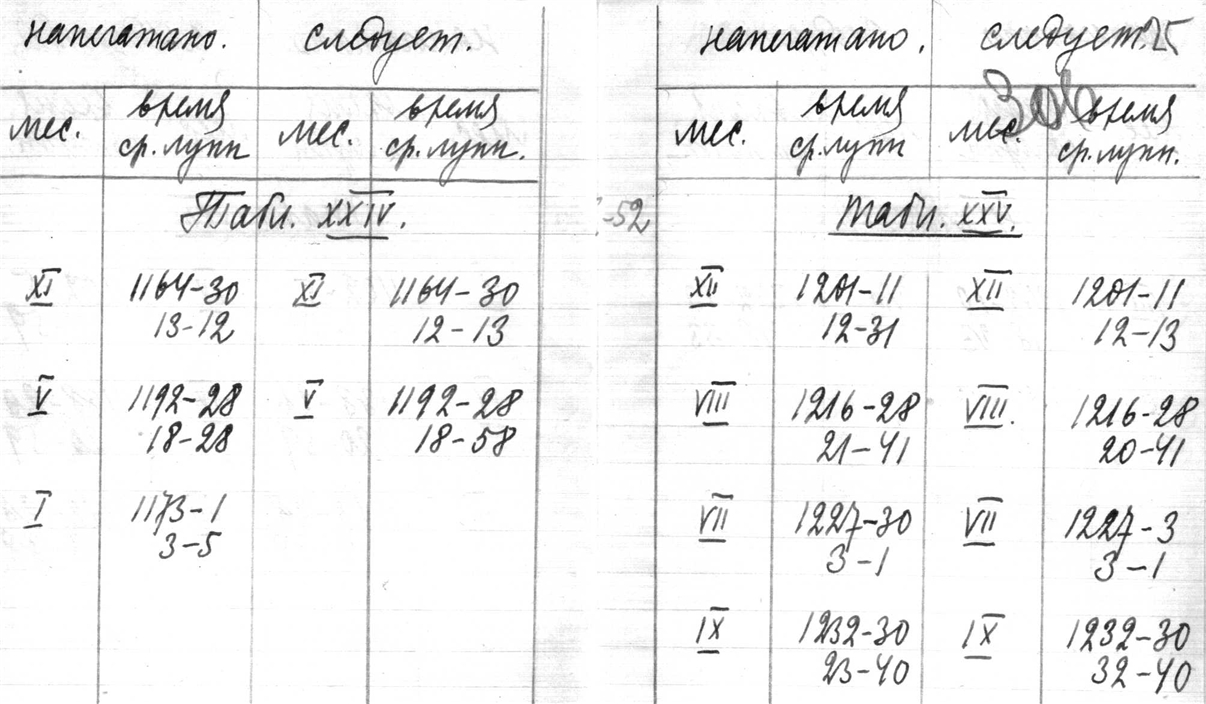 напечатано. следует.
мес. время ср. лупн мес. время ср. лупн.
Табл. XXIV.
XI 1164-30 XI 1164-30
13-12 12-13
V 1192-28 V 1192-28
18-28 18-58
I 1173-1
3-5
напечатано. следует. 25
мес. время ср. лупн мес. время ср. лупн.
-52 Табл. XXV.
XII 1201-11 XII 1201-11
12-31 12-13
VIII 1216-28 VIII. 1216-28
21-41 20-41
VII 1227-30 VII 1227-3
3-1 3-1
IX 1232-30 IX 1232-30
23-40 32-40